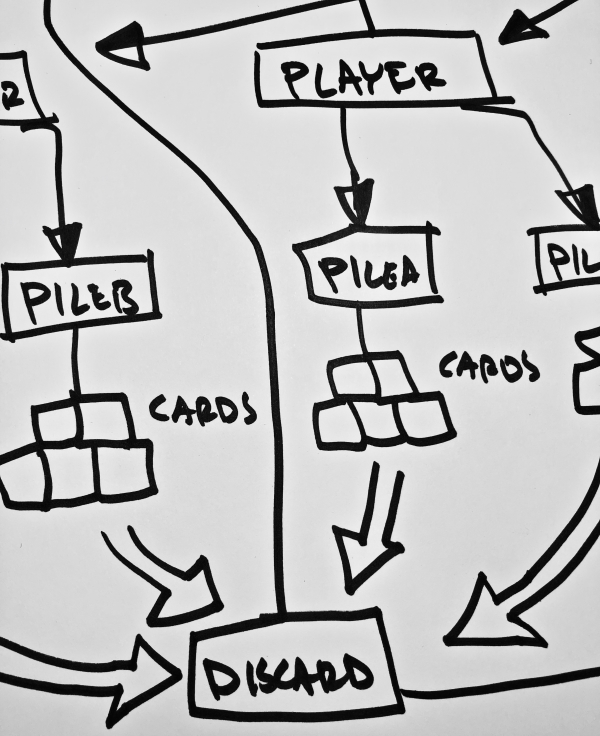 PLAYER
PILEA
PILEB
CARDS
CARDS
DISCARD